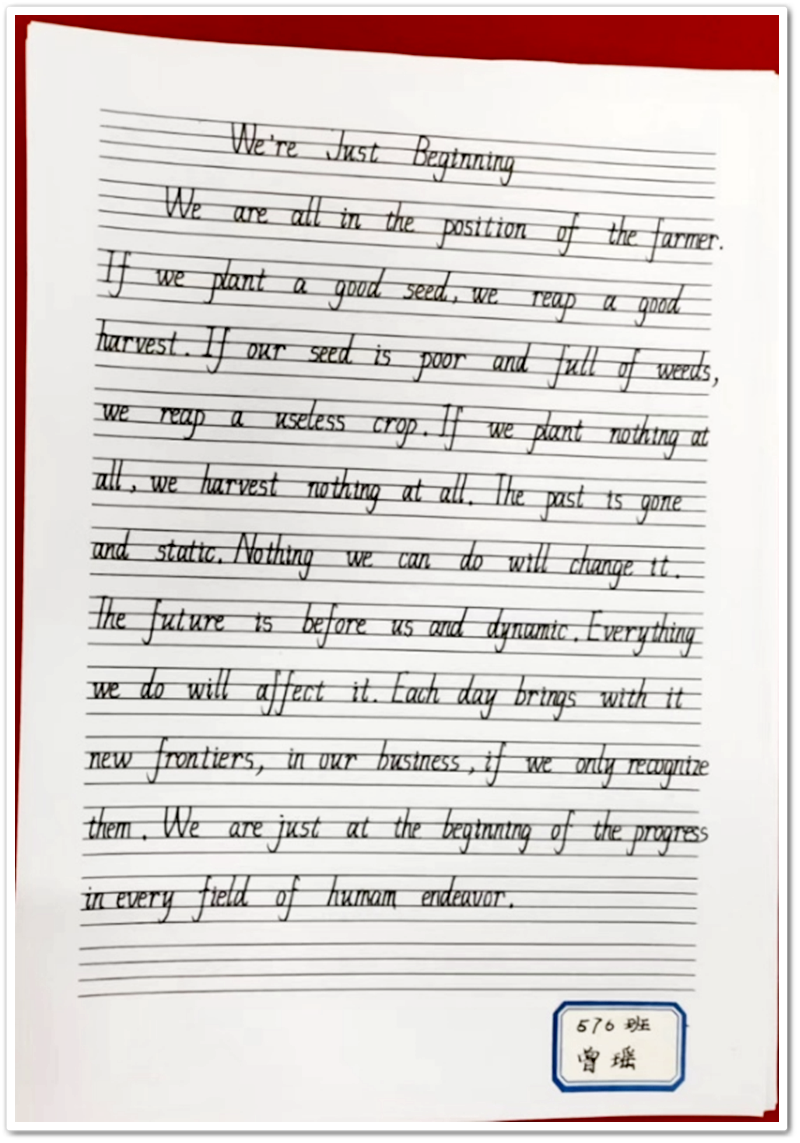 We're Just Beginning
We are all in the position of the farmer.
If we plant a good seed, we reap a good
harvest. If our seed is poor and full of weeds,
we reap a useless crop. If we plant nothing at
all, we harvest nothing at all. The past is gone
and static. Nothing we can do will change it.
The future is before us and dynamic. Everything
we do will affect it. Each day brings with it
new frontiers, in our business, if we only recognize
them. We are just at the beginning of the progress
in every field of humam endeavor.
576 班
曾瑶